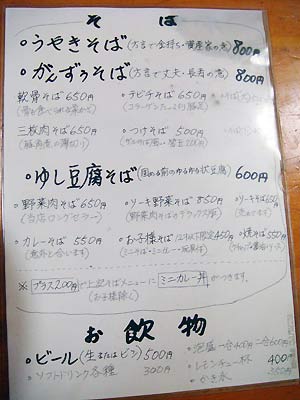 そば
・うやきそば(方言で金持ち・資産家の意) 800円
・がんずぅそば(方言で丈夫・長寿の意) 800円
軟骨そば 650円 ・テビチそば 650円
(骨も食べられる柔らかさ) (コラーゲンたっぷり豚足)
三枚肉そば 650円 ・つけそば 500円
(豚肉煮の薄切り)
・ゆし豆腐そば (固める前のゆるゆる状豆腐) 600円
・野菜肉そば 650円 ・ソーキ野菜そば 850円 ・ソーキそば 650円
(当店ロングセラー) (野菜肉そばデラックス版)
・カレーそば 550円 ・お子様そば (12才以下限定) 450円 ・焼そば 550円
(意外と合います) (ミニそば・ミニカレー・玩具付)
※ プラス200円で上記そばメニューにミニカレー丼がつきます。
(お子様除く)
お飲物
・ビール (生またはビン) 500円 ・泡盛 一合400円 二合600円
・ソフトドリンク各種 300円 ・レモンチュー杯 400円
・かき氷 350円